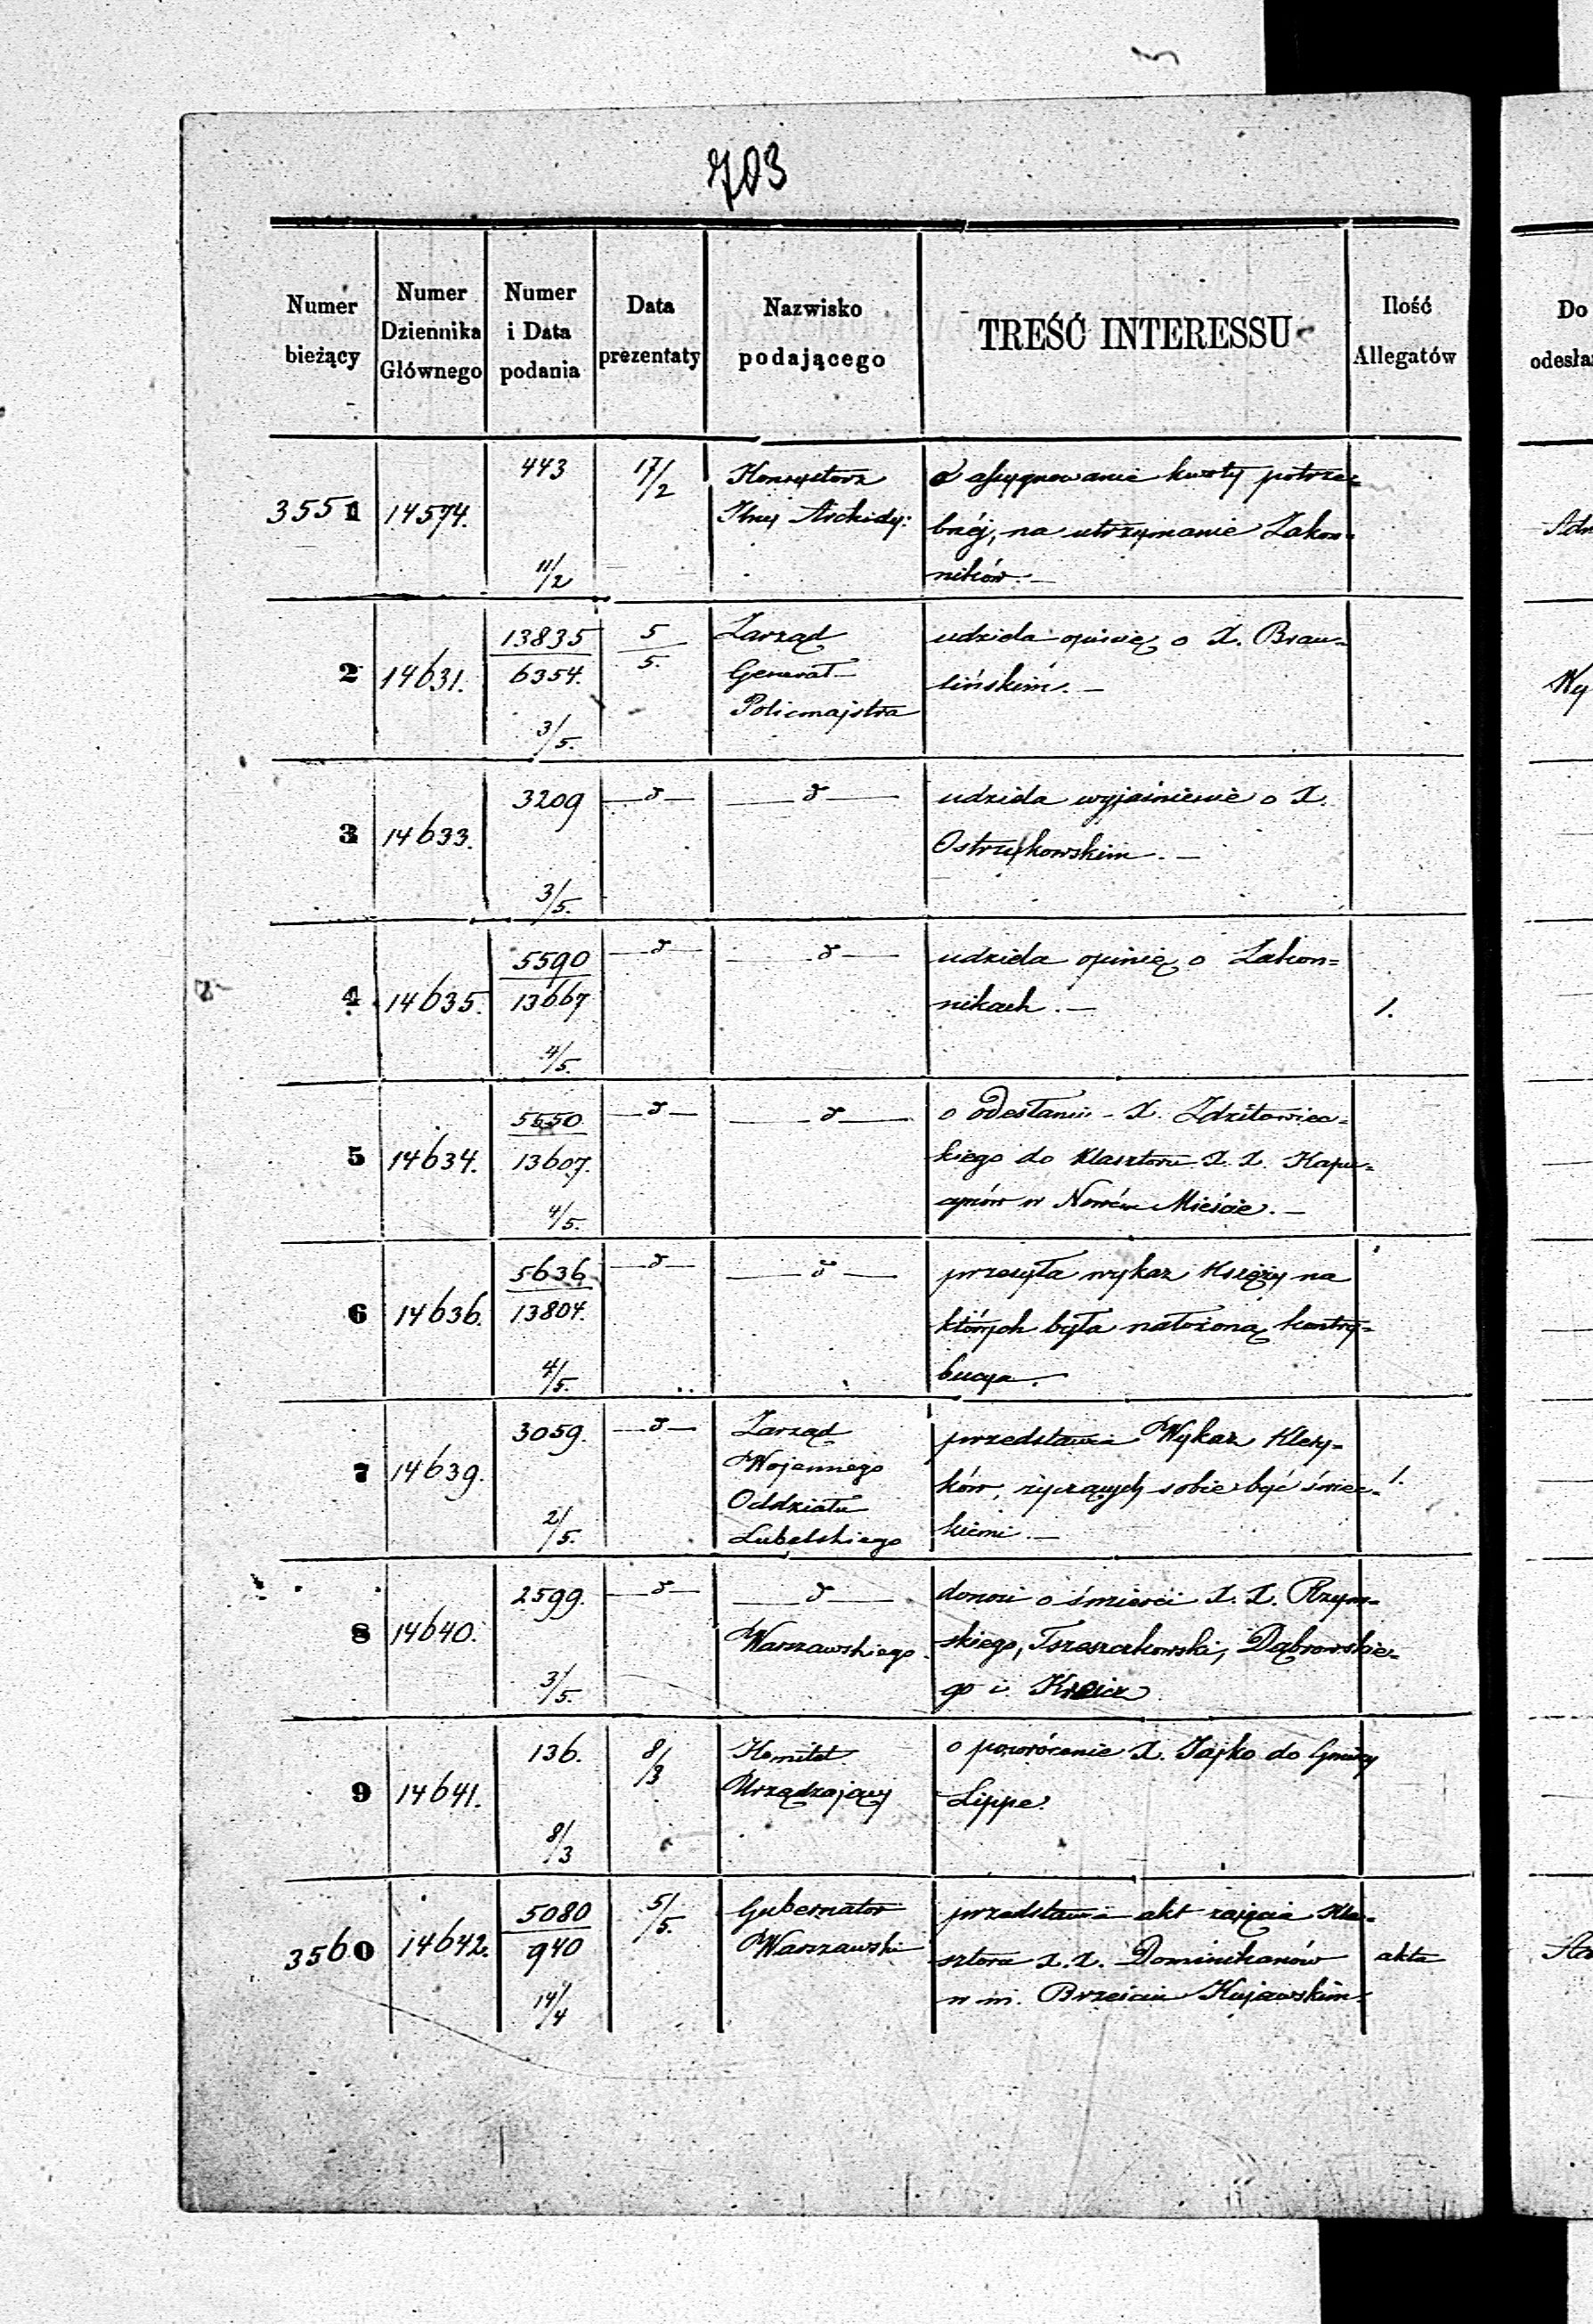 703
Numer bieżący | Numer Dziennika Głównego | Numer i Data podania | Data prezentaty | Nazwisko podającego | TREŚĆ INTERESSU | Ilość Allegatów | Do
odesła
3551 | 14574. | 443 | 17/2 | Konsystorz | o assygnowanie kwoty potrze=
Archidy: | bnéj, na utrzymanie Zakon=
11/2 | ników. —
2 | 14631. | 13835 | 5/5. | Zarząd | udziela opinię o X. Brau=
6354. | Generał | lińskim. —
3/5. | Policmajstra
3 | 14633. | 3209 | —d— | —d— | udziela wyjaśnienie o X.
Ostrzykowskim. —
3/5.
4 | 14635. | 5590 | —d— | —d— | udziela opinię o Zakon=
13667 | nikach. — | 1.
4/5.
5 | 14634. | 5550 | —d— | —d— | o odesłaniu X. Zdzitowiec=
13607. | kiego do Klasztoru X. X. Kapu=
4/5. | cynów w Nowém Mieście. —
6 | 14636. | 5636 | —d— | —d— | przesyła wykaz Księży na
13804. | których była nałożoną kontry=
4/5. | bucya.
7 | 14639. | 3059. | —d— | Zarząd | przedstawia Wykaz Klery=
Wojennego | ków, życzących sobie być świec= | 1.
Oddziału | kiemi. —
2/5. | Lubelskiego
8 | 14640. | 2599. | —d— | —d— | donosi o śmierci X. X. Rzym=
Warszawskiego. | skiego, Dąbrowskie=
3/5. | go i
9 | 14641. | 136. | 8/3 | Komitet | o powrócenie X. Jajko do Gminy
Urządzający | Lippe.
8/3
3560 | 14642. | 5080 | 5/5. | Gubernator | przedstawia akt zajęcia Kla=
940 | Warszawski | sztora X. X. Dominikanów | akta
14/4 | w m. Brześciu Kujawskim.